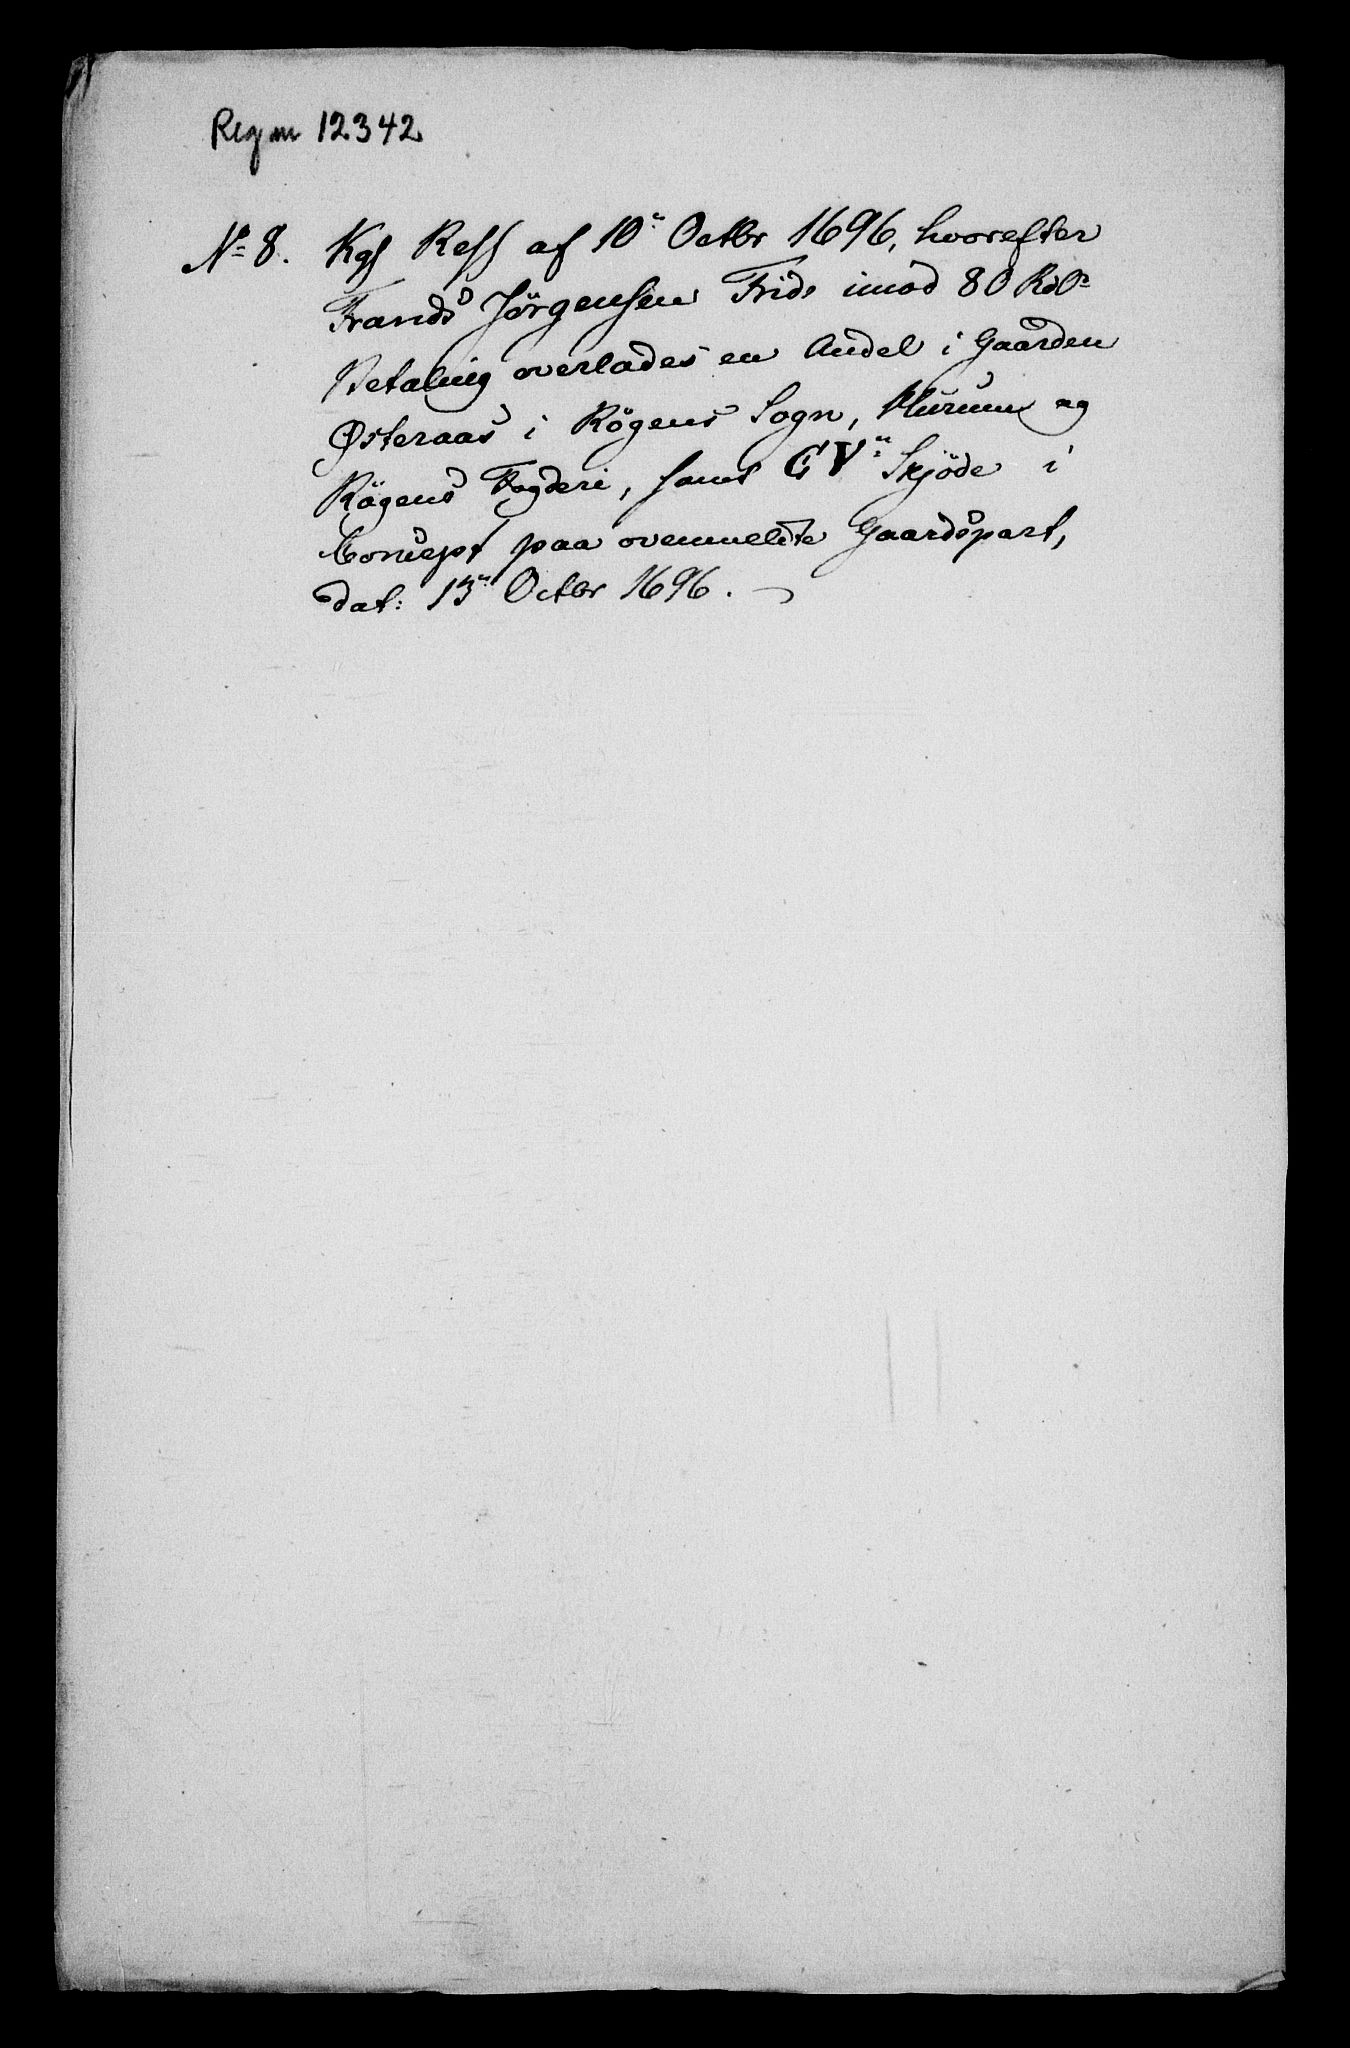 Reg nr 12342
No 8. Kgl Resl af 10n Octbr 1696, hvorefter
Frands Jörgensen Friis imod 80 Rdlrs
Betaling overlades en Andel i Gaarden
Østeraas i Røgens Sogn, Hurums og
Røgens Fogderi, samt CVs Skjöde i
Concept paa ovenmeldte Gaardspart,
dat: 13n Octbr 1696.